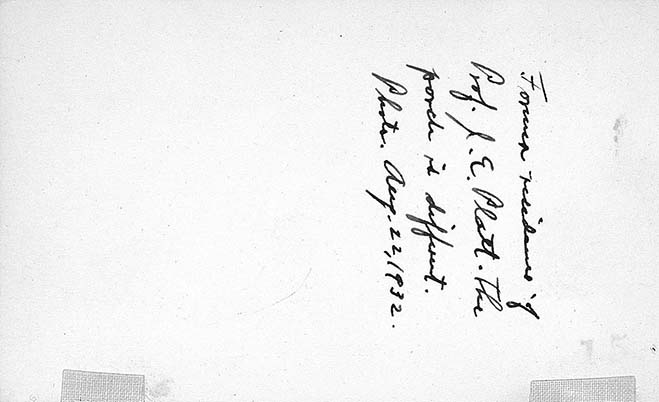 Former residence of
Prof. J. E. Platt. The
porch is different.
Photo. Aug. 22, 1932.